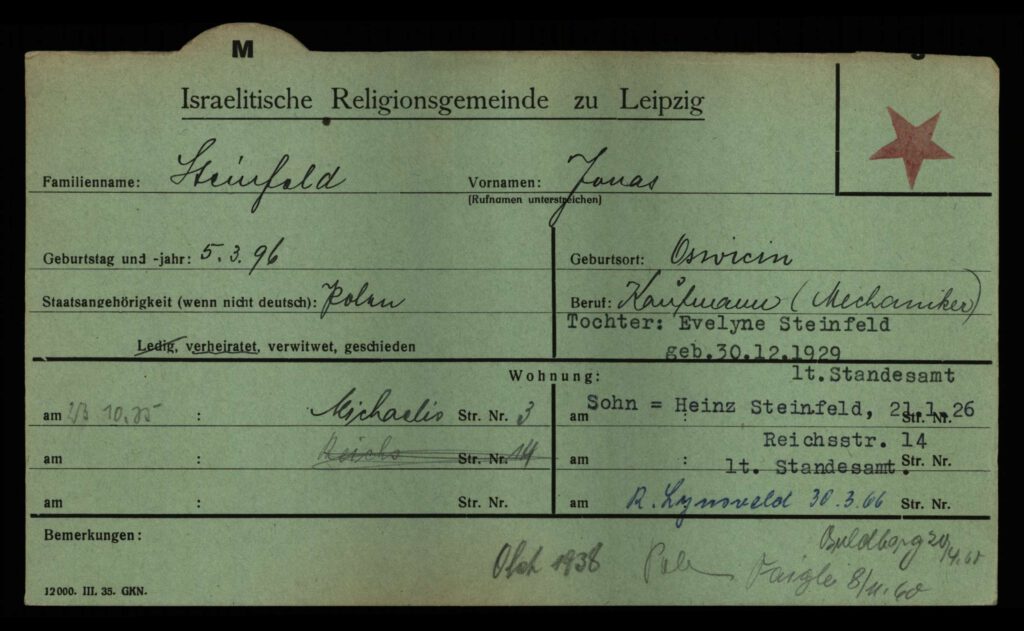 M
Israelitische Religionsgemeinde zu Leipzig
Familienname: Steinfeld Vornamen: Jonas
(Rufnamen unterstreichen)
Geburtstag und -jahr: 5.3.96 Geburtsort: Oswicin
Staatsangehörigkeit (wenn nicht deutsch): Polen Beruf: Kaufmann (Mechaniker)
Tochter: Evelyne Steinfeld
Ledig, verheiratet, verwitwet, geschieden geb.30.12.1929
Wohnung: lt.Standesamt
am 10.35 : Michaelis Str. Nr. 3 am Sohn = Heinz Steinfeld, 21.1.26 Str. Nr.
Reichsstr. 14
am : Reichs Str. Nr. 14 am : lt. Standesamt. Str. Nr.
am : Str. Nr. am R. 30.3.66 Str. Nr.
Bemerkungen:
1938 8/11.60
12000. III. 35. GKN.